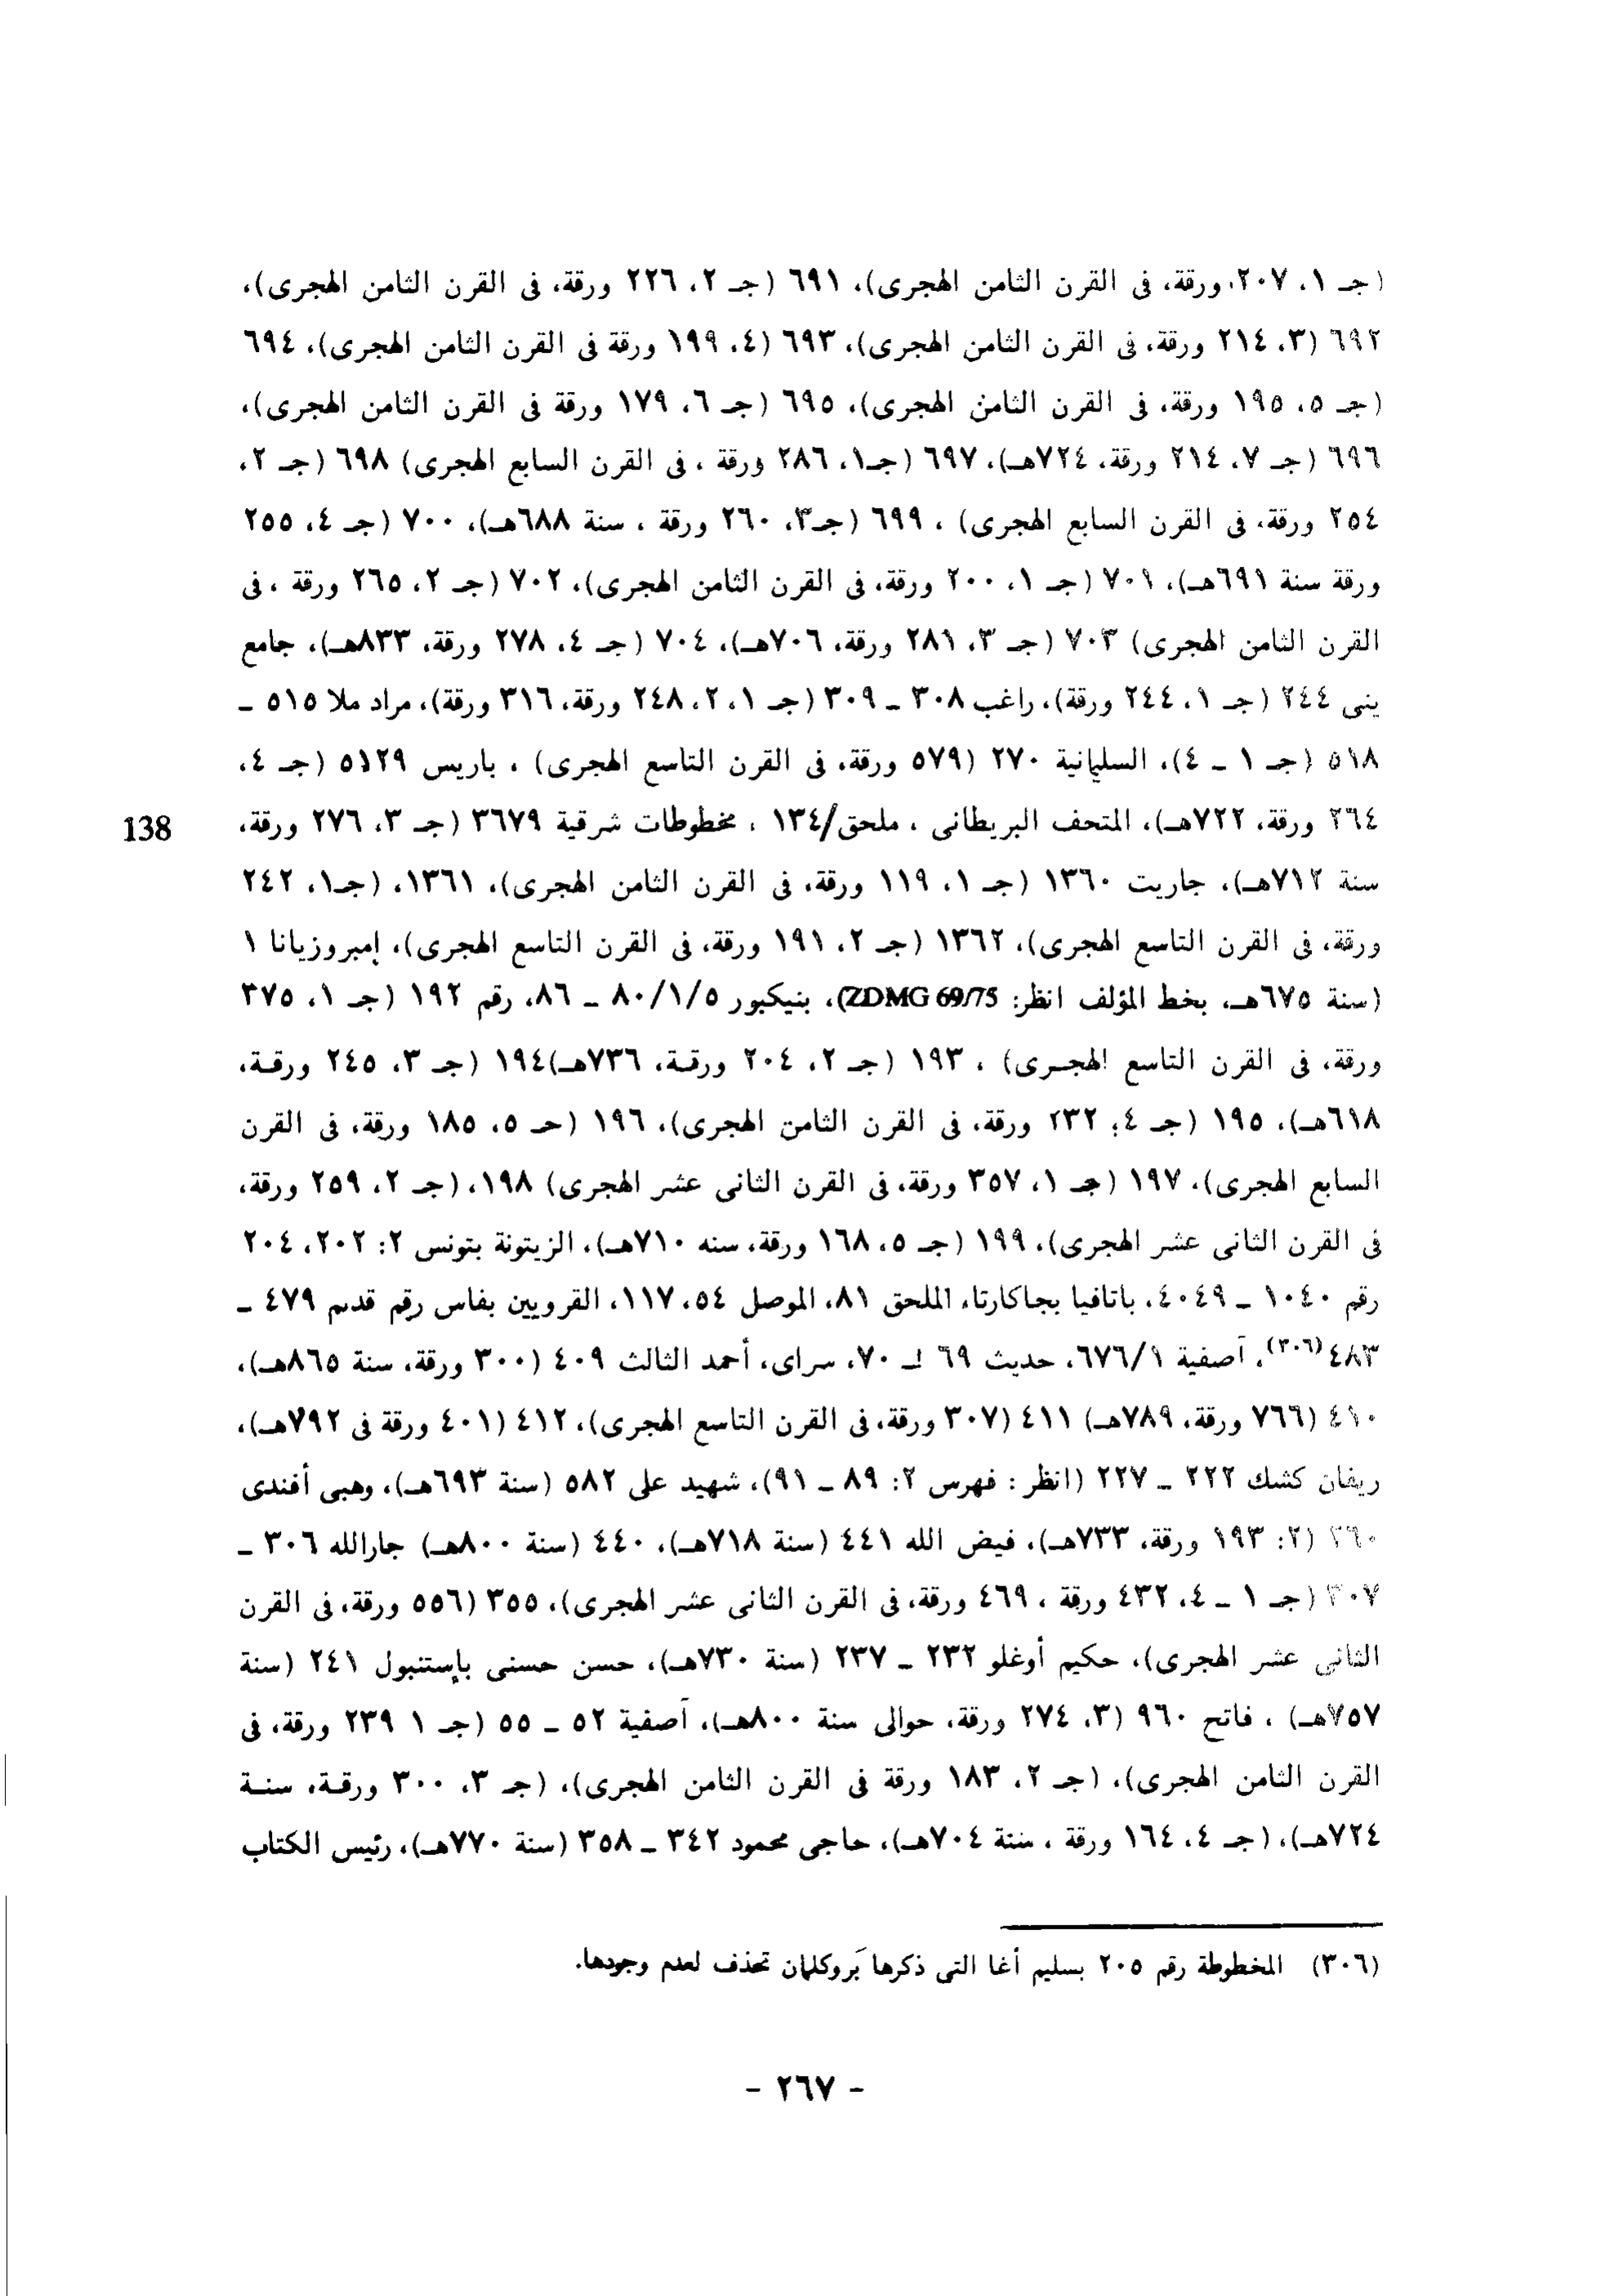 (جـ ١، ٢٠٧، ورقة، فى القرن الثامن الهجرى)، ٦٩١ (جـ ٢، ٢٢٦ ورقة، فى القرن الثامن الهجرى)،
٦٩٢ (٣، ٢١٤ ورقة، فى القرن الثامن الهجرى)، ٦٩٣ (٤، ١٩٩ ورقة فى القرن الثامن الهجرى)، ٦٩٤
(جـ ٥، ١٩٥ ورقة، فى القرن الثامن الهجرى)، ٦٩٥ (جـ ٦، ١٧٩ ورقة فى القرن الثامن الهجرى)،
٦٩٦ (جـ ٧، ٢١٤ ورقة، ٧٢٤هـ)، ٦٩٧ (جـ١، ٢٨٦ ورقة ، فى القرن السابع الهجرى) ٦٩٨ (جـ ٢،
٢٥٤ ورقة، فى القرن السابع الهجرى) ، ٦٩٩ (جـ٣، ٢٦٠ ورقة ، سنة ٦٨٨هـ)، ٧٠٠ (جـ ٤، ٢٥٥
ورقة سنة ٦٩١هـ)، ٧٠١ (جـ ١، ٢٠٠ ورقة، فى القرن الثامن الهجرى)، ٧٠٢ (جـ ٢، ٢٦٥ ورقة ، فى
القرن الثامن الهجرى) ٧٠٣ (جـ ٣، ٢٨١ ورقة، ٧٠٦هـ)، ٧٠٤ (جـ ٤، ٢٧٨ ورقة، ٨٣٣هـ)، جامع
ينى ٢٤٤ (جـ ١، ٢٤٤ ورقة)، راغب ٣٠٨ ـ ٣٠٩ (جـ ١، ٢، ٢٤٨ ورقة، ٣١٦ ورقة)، مراد ملا ٥١٥ ـ
٥١٨ (جـ ١ ـ ٤)، السليمانية ٢٧٠ (٥٧٩ ورقة، فى القرن التاسع الهجرى) ، باريس ٥١٢٩ (جـ ٤،
٢٦٤ ورقة، ٧٢٢هـ)، المتحف البريطانى ، ملحق/١٣٤ ، مخطوطات شرقية ٣٦٧٩ (جـ ٣، ٢٧٦ ورقة،
138
سنة ٧١٢هـ)، جاريت ١٣٦٠ (جـ ١، ١١٩ ورقة، فى القرن الثامن الهجرى)، ١٣٦١، (جـ١، ٢٤٢
ورقة، فى القرن التاسع الهجرى)، ١٣٦٢ (جـ ٢، ١٩١ ورقة، فى القرن التاسع الهجرى)، إمبروزيانا ١
(سنة ٦٧٥هـ، بخط المؤلف انظر: ZDMG 69/75)، بنيكبور ٨٠/١/٥ ـ ٨٦، رقم ١٩٢ (جـ ١، ٣٧٥
ورقة، فى القرن التاسع الهجـرى) ، ١٩٣ (جـ ٢، ٢٠٤ ورقـة، ٧٣٦هـ)١٩٤ (جـ ٣، ٢٤٥ ورقـة،
٦١٨هـ)، ١٩٥ (جـ ٤، ٢٣٢ ورقة، فى القرن الثامن الهجرى)، ١٩٦ (حـ ٥، ١٨٥ ورقة، فى القرن
السابع الهجرى)، ١٩٧ (جـ ١، ٣٥٧ ورقة، فى القرن الثانى عشر الهجرى) ١٩٨، (جـ ٢، ٢٥٩ ورقة،
فى القرن الثانى عشر الهجرى)، ١٩٩ (جـ ٥، ١٦٨ ورقة، سنه ٧١٠هـ)، الزيتونة بتونس ٢: ٢٠٢، ٢٠٤
رقم ١٠٤٠ ـ ٤٠٤٩، باتافيا بجاكارتا، الملحق ٨١، الموصل ٥٤، ١١٧، القرويين بفاس رقم قديم ٤٧٩ ـ
٤٨٣(٣٠٦)، آصفية ٦٧٦/١، حديث ٦٩ لـ ٧٠، سراى، أحمد الثالث ٤٠٩ (٣٠٠ ورقة، سنة ٨٦٥هـ)،
٤١٠ (٧٦٦ ورقة، ٧٨٩هـ) ٤١١ (٣٠٧ ورقة، فى القرن التاسع الهجرى)، ٤١٢ (٤٠١ ورقة فى ٧٩٢هـ)،
ريفان كشك ٢٢٢ ـ ٢٢٧ (انظر : فهرس ٢: ٨٩ ـ ٩١)، شهيد على ٥٨٢ (سنة ٦٩٣هـ)، وهبى أفندى
٢٦٠ (٢: ١٩٣ ورقة، ٧٣٣هـ)، فيض الله ٤٤١ (سنة ٧١٨هـ)، ٤٤٠ (سنة ٨٠٠هـ) جارالله ٣٠٦ ـ
٣٠٧ (جـ ١ ـ ٤، ٤٣٢ ورقة ، ٤٦٩ ورقة، فى القرن الثانى عشر الهجرى)، ٣٥٥ (٥٥٦ ورقة، فى القرن
الثانى عشر الهجرى)، حكيم أوغلو ٢٣٢ ـ ٢٣٧ (سنة ٧٣٠هـ)، حسن حسنى بإستنبول ٢٤١ (سنة
٧٥٧هـ) ، فاتح ٩٦٠ (٣، ٢٧٤ ورقة، حوالى سنة ٨٠٠هـ)، آصفية ٥٢ ـ ٥٥ (جـ ١ ٢٣٩ ورقة، فى
القرن الثامن الهجرى)، (جـ ٢، ١٨٣ ورقة فى القرن الثامن الهجرى)، (جـ ٣، ٣٠٠ ورقـة، سنـة
٧٢٤هـ)، (جـ ٤، ١٦٤ ورقة ، سنة ٧٠٤هـ)، حاجى محمود ٣٤٢ ـ ٣٥٨ (سنة ٧٧٠هـ)، رئيس الكتاب
(٣٠٦) المخطوطة رقم ٢٠٥ بسليم أغا التى ذكرها بَروكلمان تحذف لعدم وجودها.
- ٢٦٧ -